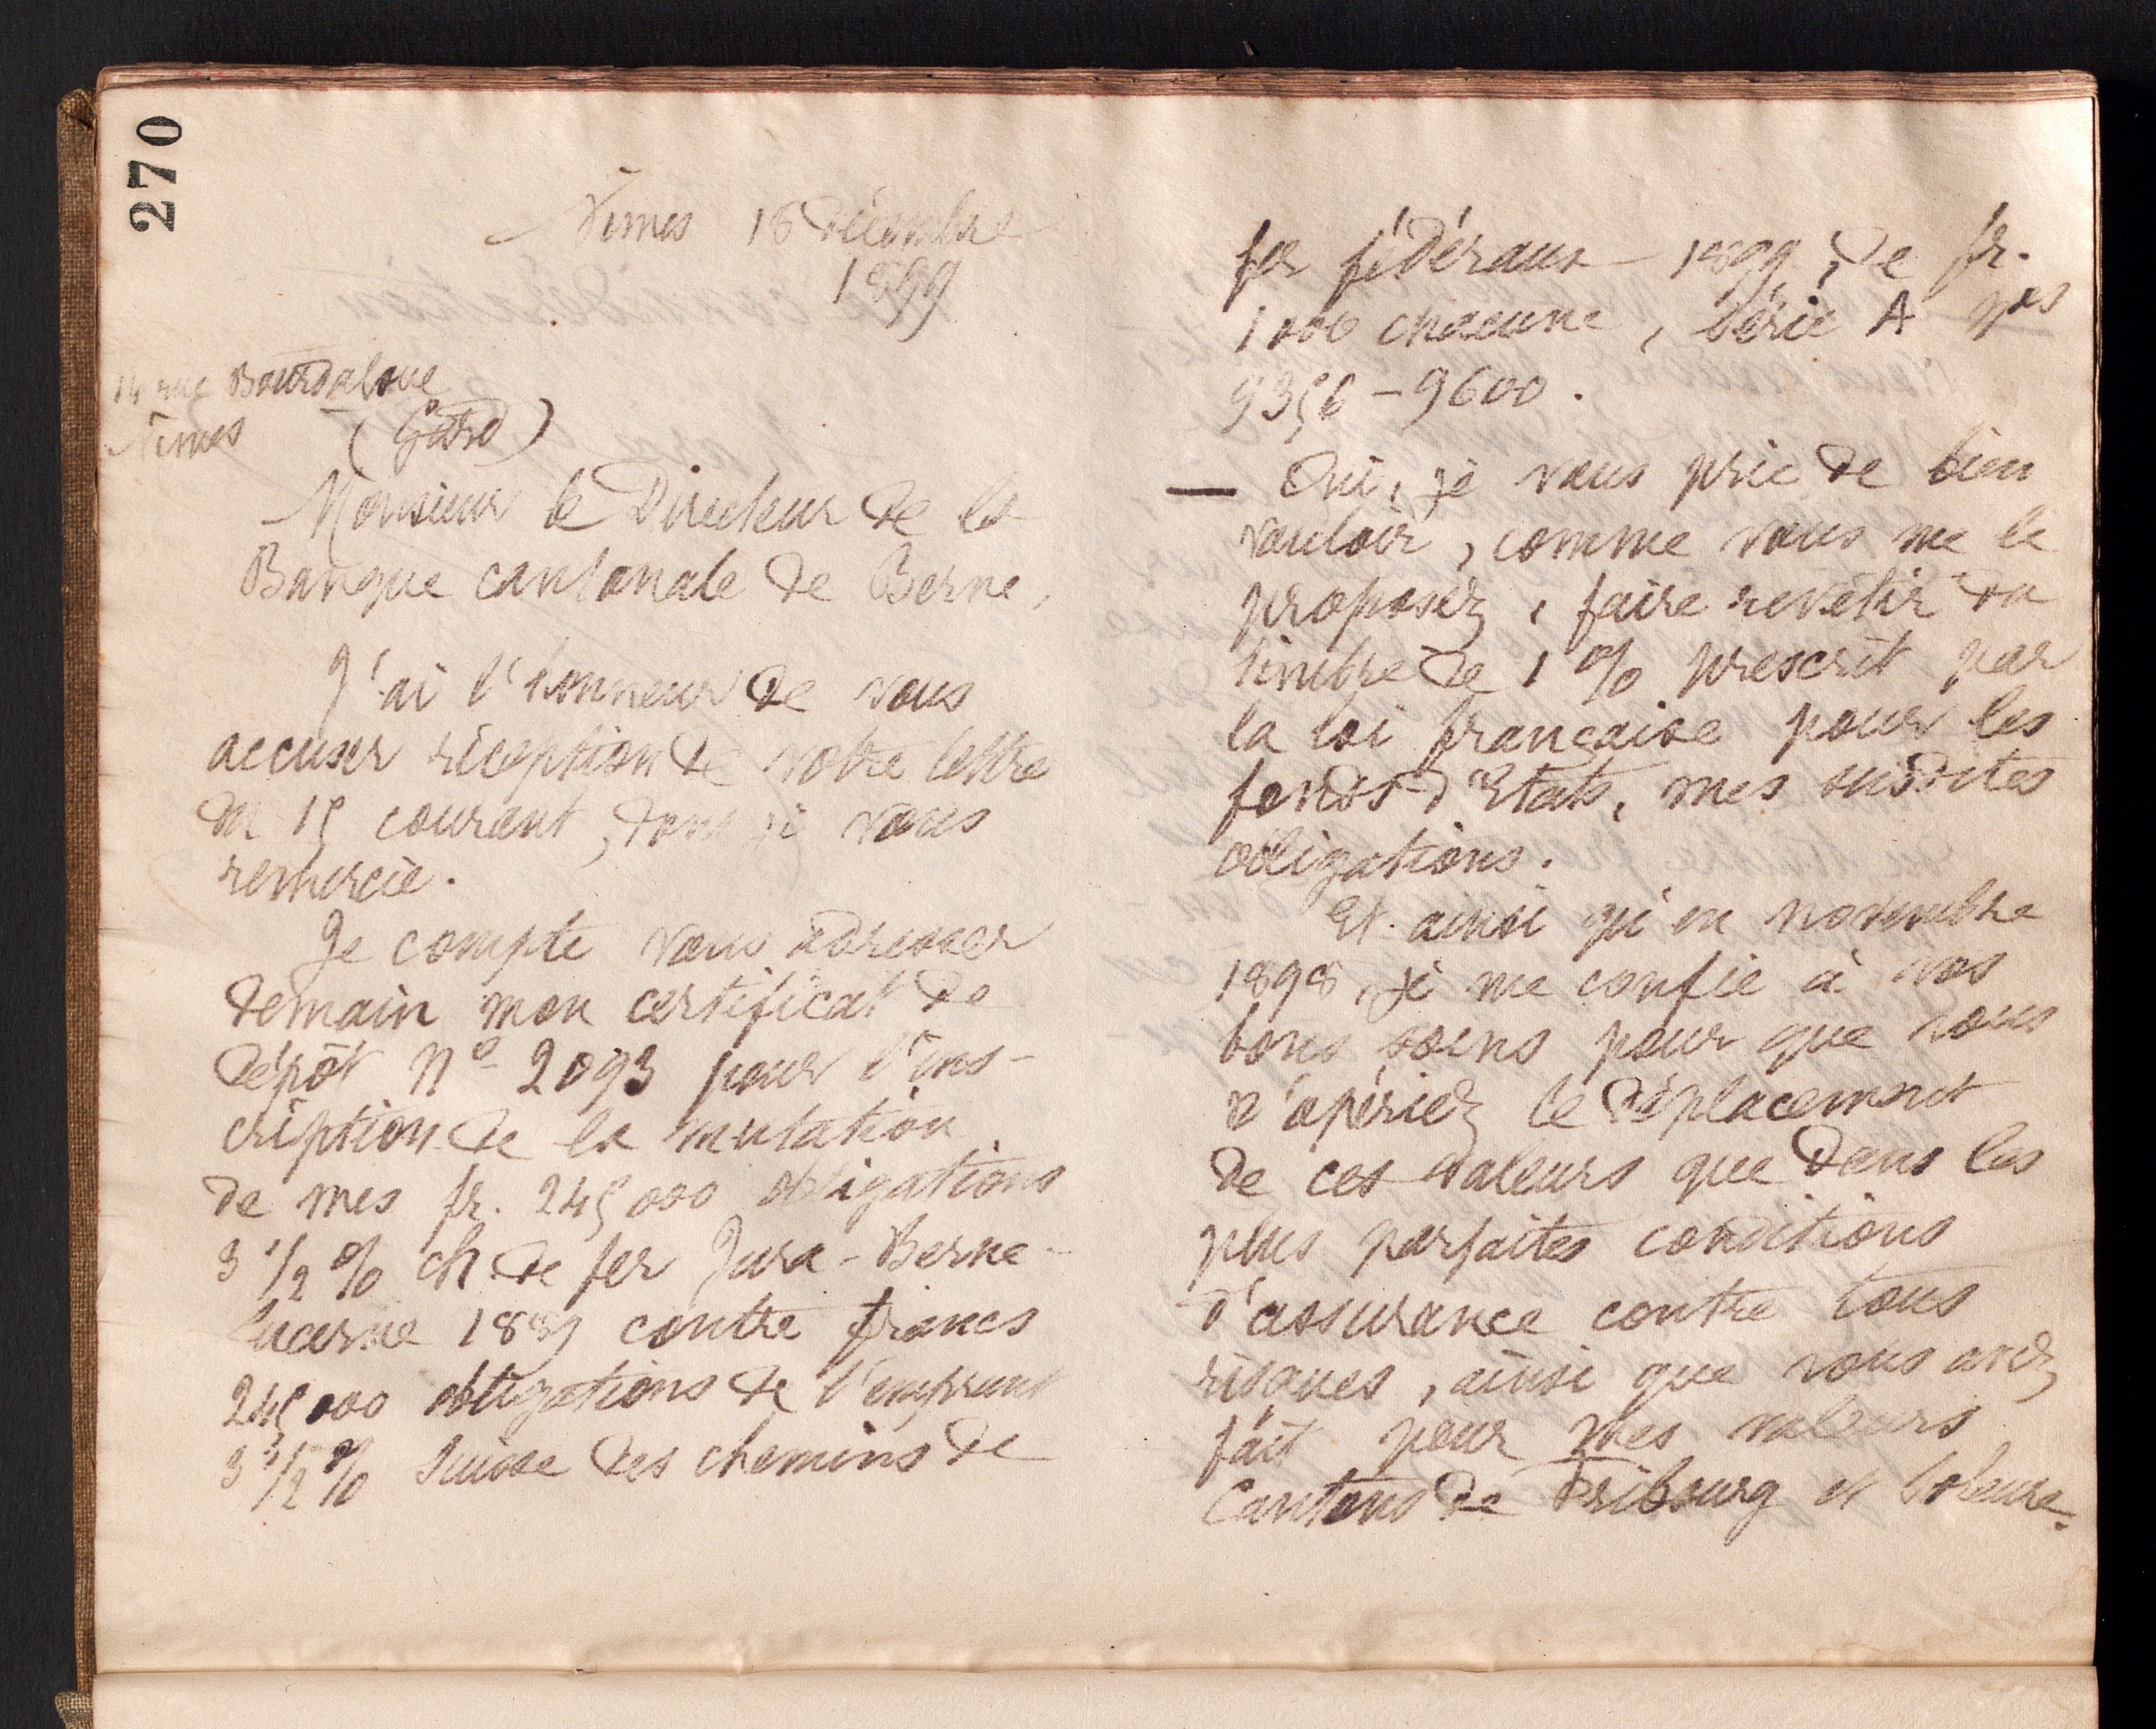 270
Nîmes 18 décembre
1899
14 rue Bourdaloue
Nîmes (Gard)
Monsieur le Directeur de la
Banque cantonale de Berne,
J'ai l'honneur de vous
accuser réception de votre lettre
du 15 courant, dont je vous
remercie.
Je compte vous adresser
demain mon certificat de
dépôt No 2093 pour l'ins-
cription de la mutation
de mes fr. 245000 obligations
3 1/2 % ch. de fer Jura-Berne-
Lucerne 1889 contre francs
245000 obligations de l'emprunt
3 1/2 % Suisse des chemins de
fer fédéraux 1899, de fr.
1000 chacune, Série A nos
9356 - 9600.
— Oui, je vous prie de bien
vouloir, comme vous me le
proposez, faire revêtir du
timbre de 1 % prescrit par
la loi française pour les
fonds d'Etats, mes susdites
obligations.
Et ainsi qu'en novembre
1898, je me confie à vos
bons soins pour que vous
n'opériez le déplacement
de ces valeurs que dans les
plus parfaites conditions
d'assurance contre tous
risques, ainsi que vous avez
fait pour mes valeurs
Cantons de Fribourg et Soleure.